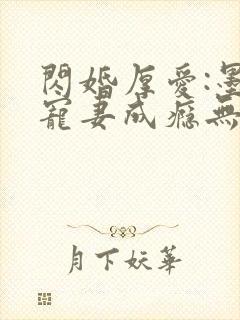 閃婚厚愛:墨
寵妻成癮無
月下妖華